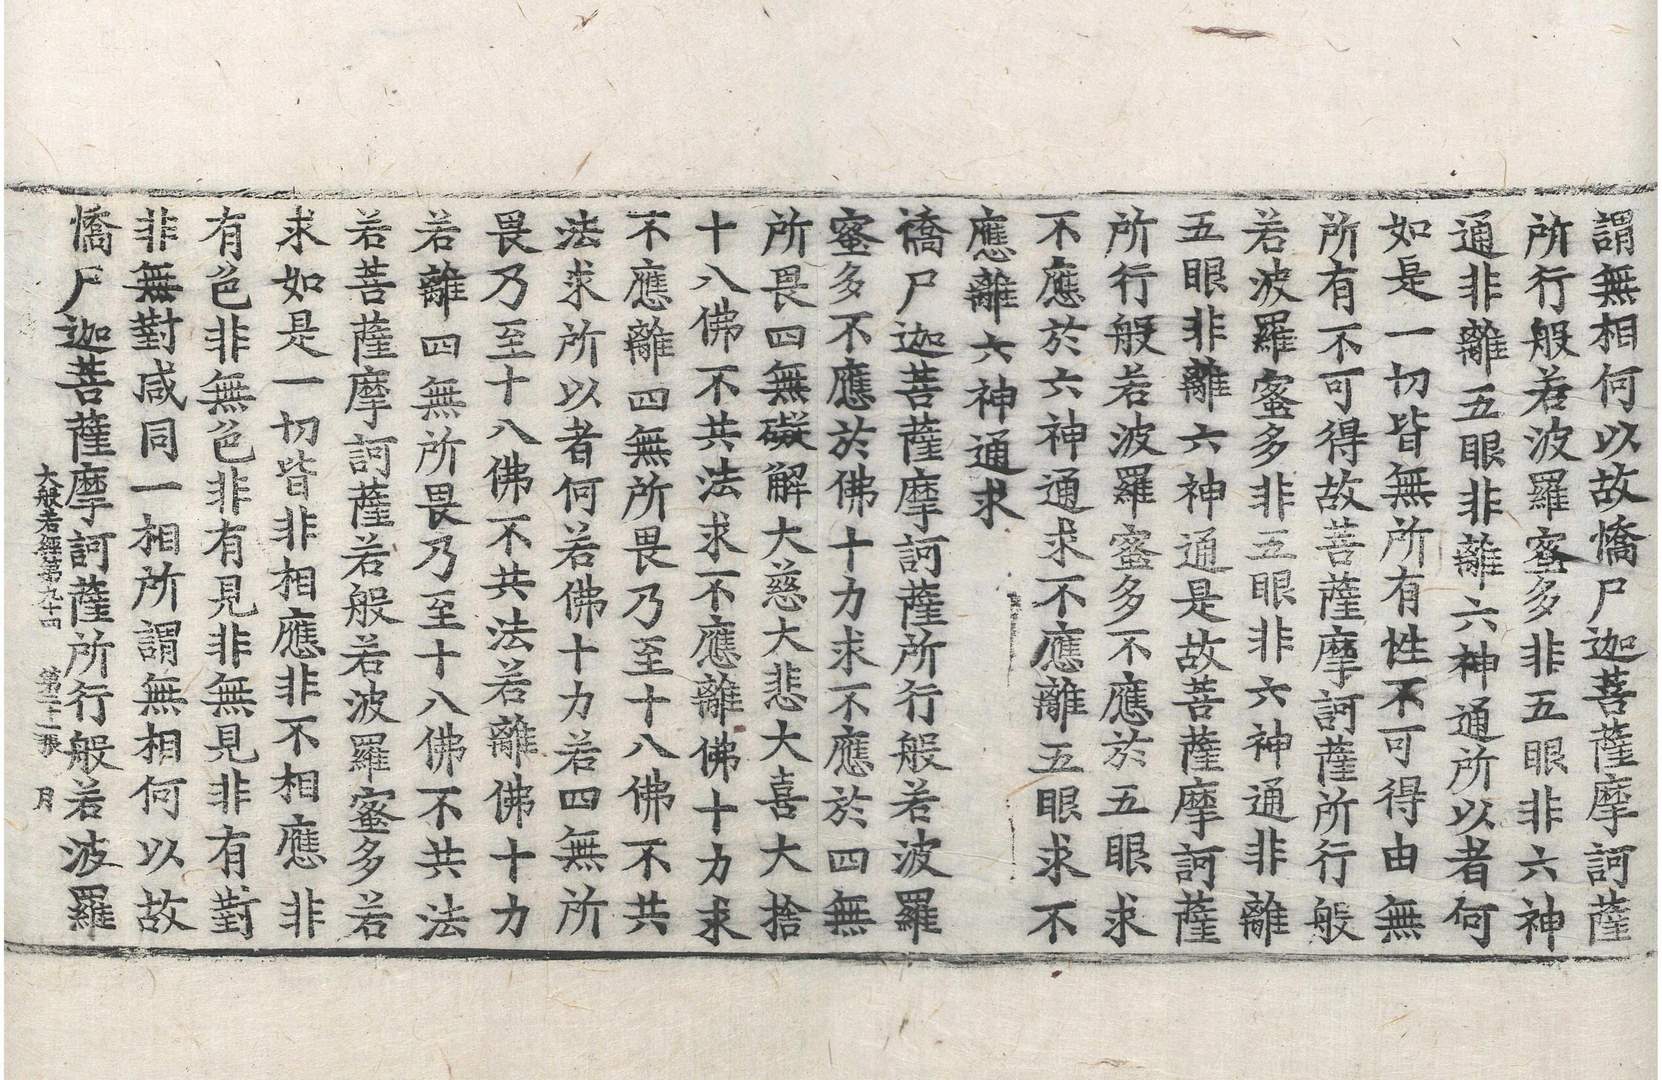 謂無相何以故憍尸迦菩薩摩訶薩
所行般若波羅蜜多非五眼非六神
通非離五眼非離六神通所以者何
如是一切皆無所有性不可得由無
所有不可得故菩薩摩訶薩所行般
若波羅蜜多非五眼非六神通非離
五眼非離六神通是故菩薩摩訶薩
所行般若波羅蜜多不應於五眼求
不應於六神通求不應離五眼求不
應離六神通求
憍尸迦菩薩摩訶薩所行般若波羅
蜜多不應於佛十力求不應於四無
所畏四無礙解大慈大悲大喜大捨
十八佛不共法求不應離佛十力求
不應離四無所畏乃至十八佛不共
法求所以者何若佛十力若四無所
畏乃至十八佛不共法若離佛十力
若離四無所畏乃至十八佛不共法
若菩薩摩訶薩若般若波羅蜜多若
求如是一切皆非相應非不相應非
有色非無色非有見非無見非有對
非無對咸同一相所謂無相何以故
憍尸迦菩薩摩訶薩所行般若波羅
大般若經第九十四 第二十二張 月